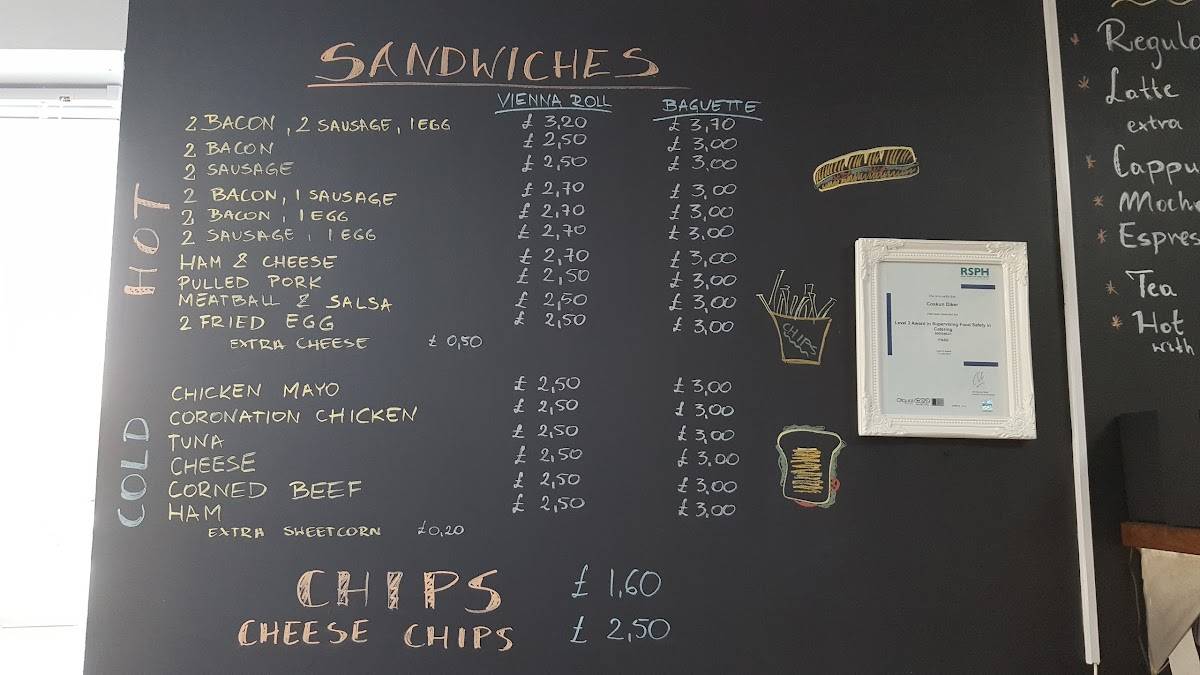 SANDWICHES
VIENNA ROLL BAGUETTE
HOT
2 BACON, 2 SAUSAGE, 1 EGG £ 3,20 £ 3,70
2 BACON £ 2,50 £ 3,00
2 SAUSAGE £ 2,50 £ 3,00
2 BACON, 1 SAUSAGE £ 2,70 £ 3,00
2 BACON, 1 EGG £ 2,70 £ 3,00
2 SAUSAGE, 1 EGG £ 2,70 £ 3,00
HAM & CHEESE £ 2,70 £ 3,00
PULLED PORK £ 2,50 £ 3,00
MEATBALL & SALSA £ 2,50 £ 3,00
2 FRIED EGG £ 2,50 £ 3,00
EXTRA CHEESE £ 0,50
COLD
CHICKEN MAYO £ 2,50 £ 3,00
CORONATION CHICKEN £ 2,50 £ 3,00
TUNA £ 2,50 £ 3,00
CHEESE £ 2,50 £ 3,00
CORNED BEEF £ 2,50 £ 3,00
HAM £ 2,50 £ 3,00
EXTRA SWEETCORN £0,20
CHIPS £ 1,60
CHEESE CHIPS £ 2,50
CHIPS
RSPH
Coskun Diker
Level 3 Award in Supervising Food Safety in
Catering
* Regula
* Latte
extra
* Cappu
* Mocha
* Espres
* Tea
* Hot
with